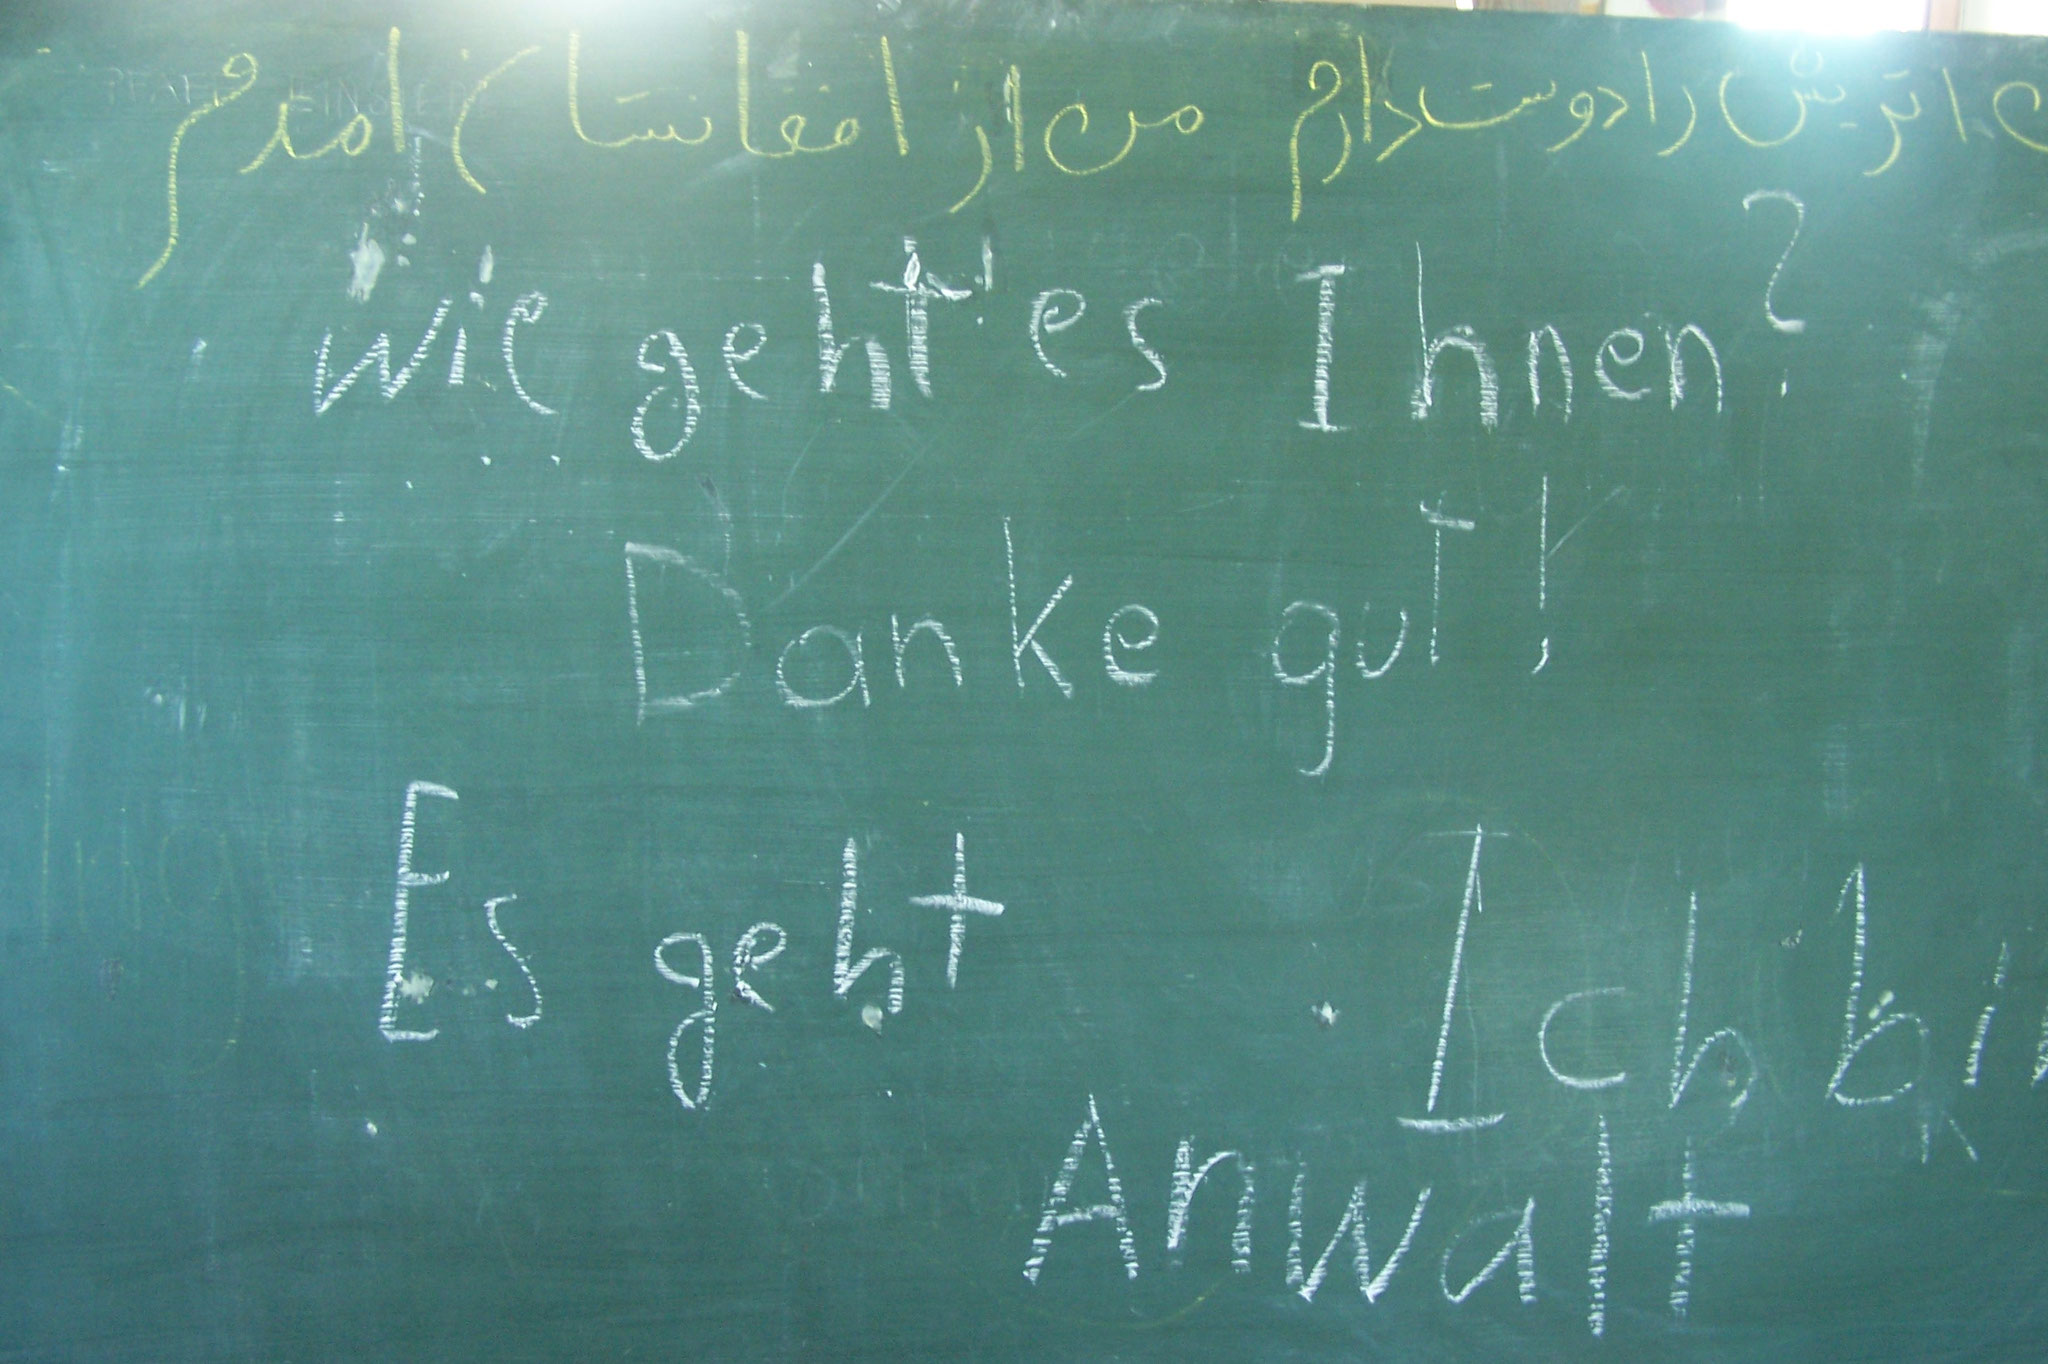 اتریش را دوست دارم من از افغانستان امدم
wie geht es Ihnen?
Danke gut!
Es geht
Ich bin
Anwalt